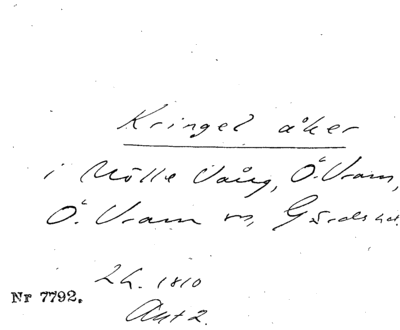 Kringel åker
i Mölle Vång, Ö. Vram,
Ö. Vram sn, Gärds hd.
Lh. 1810
Nr 7792.
Akt 2.